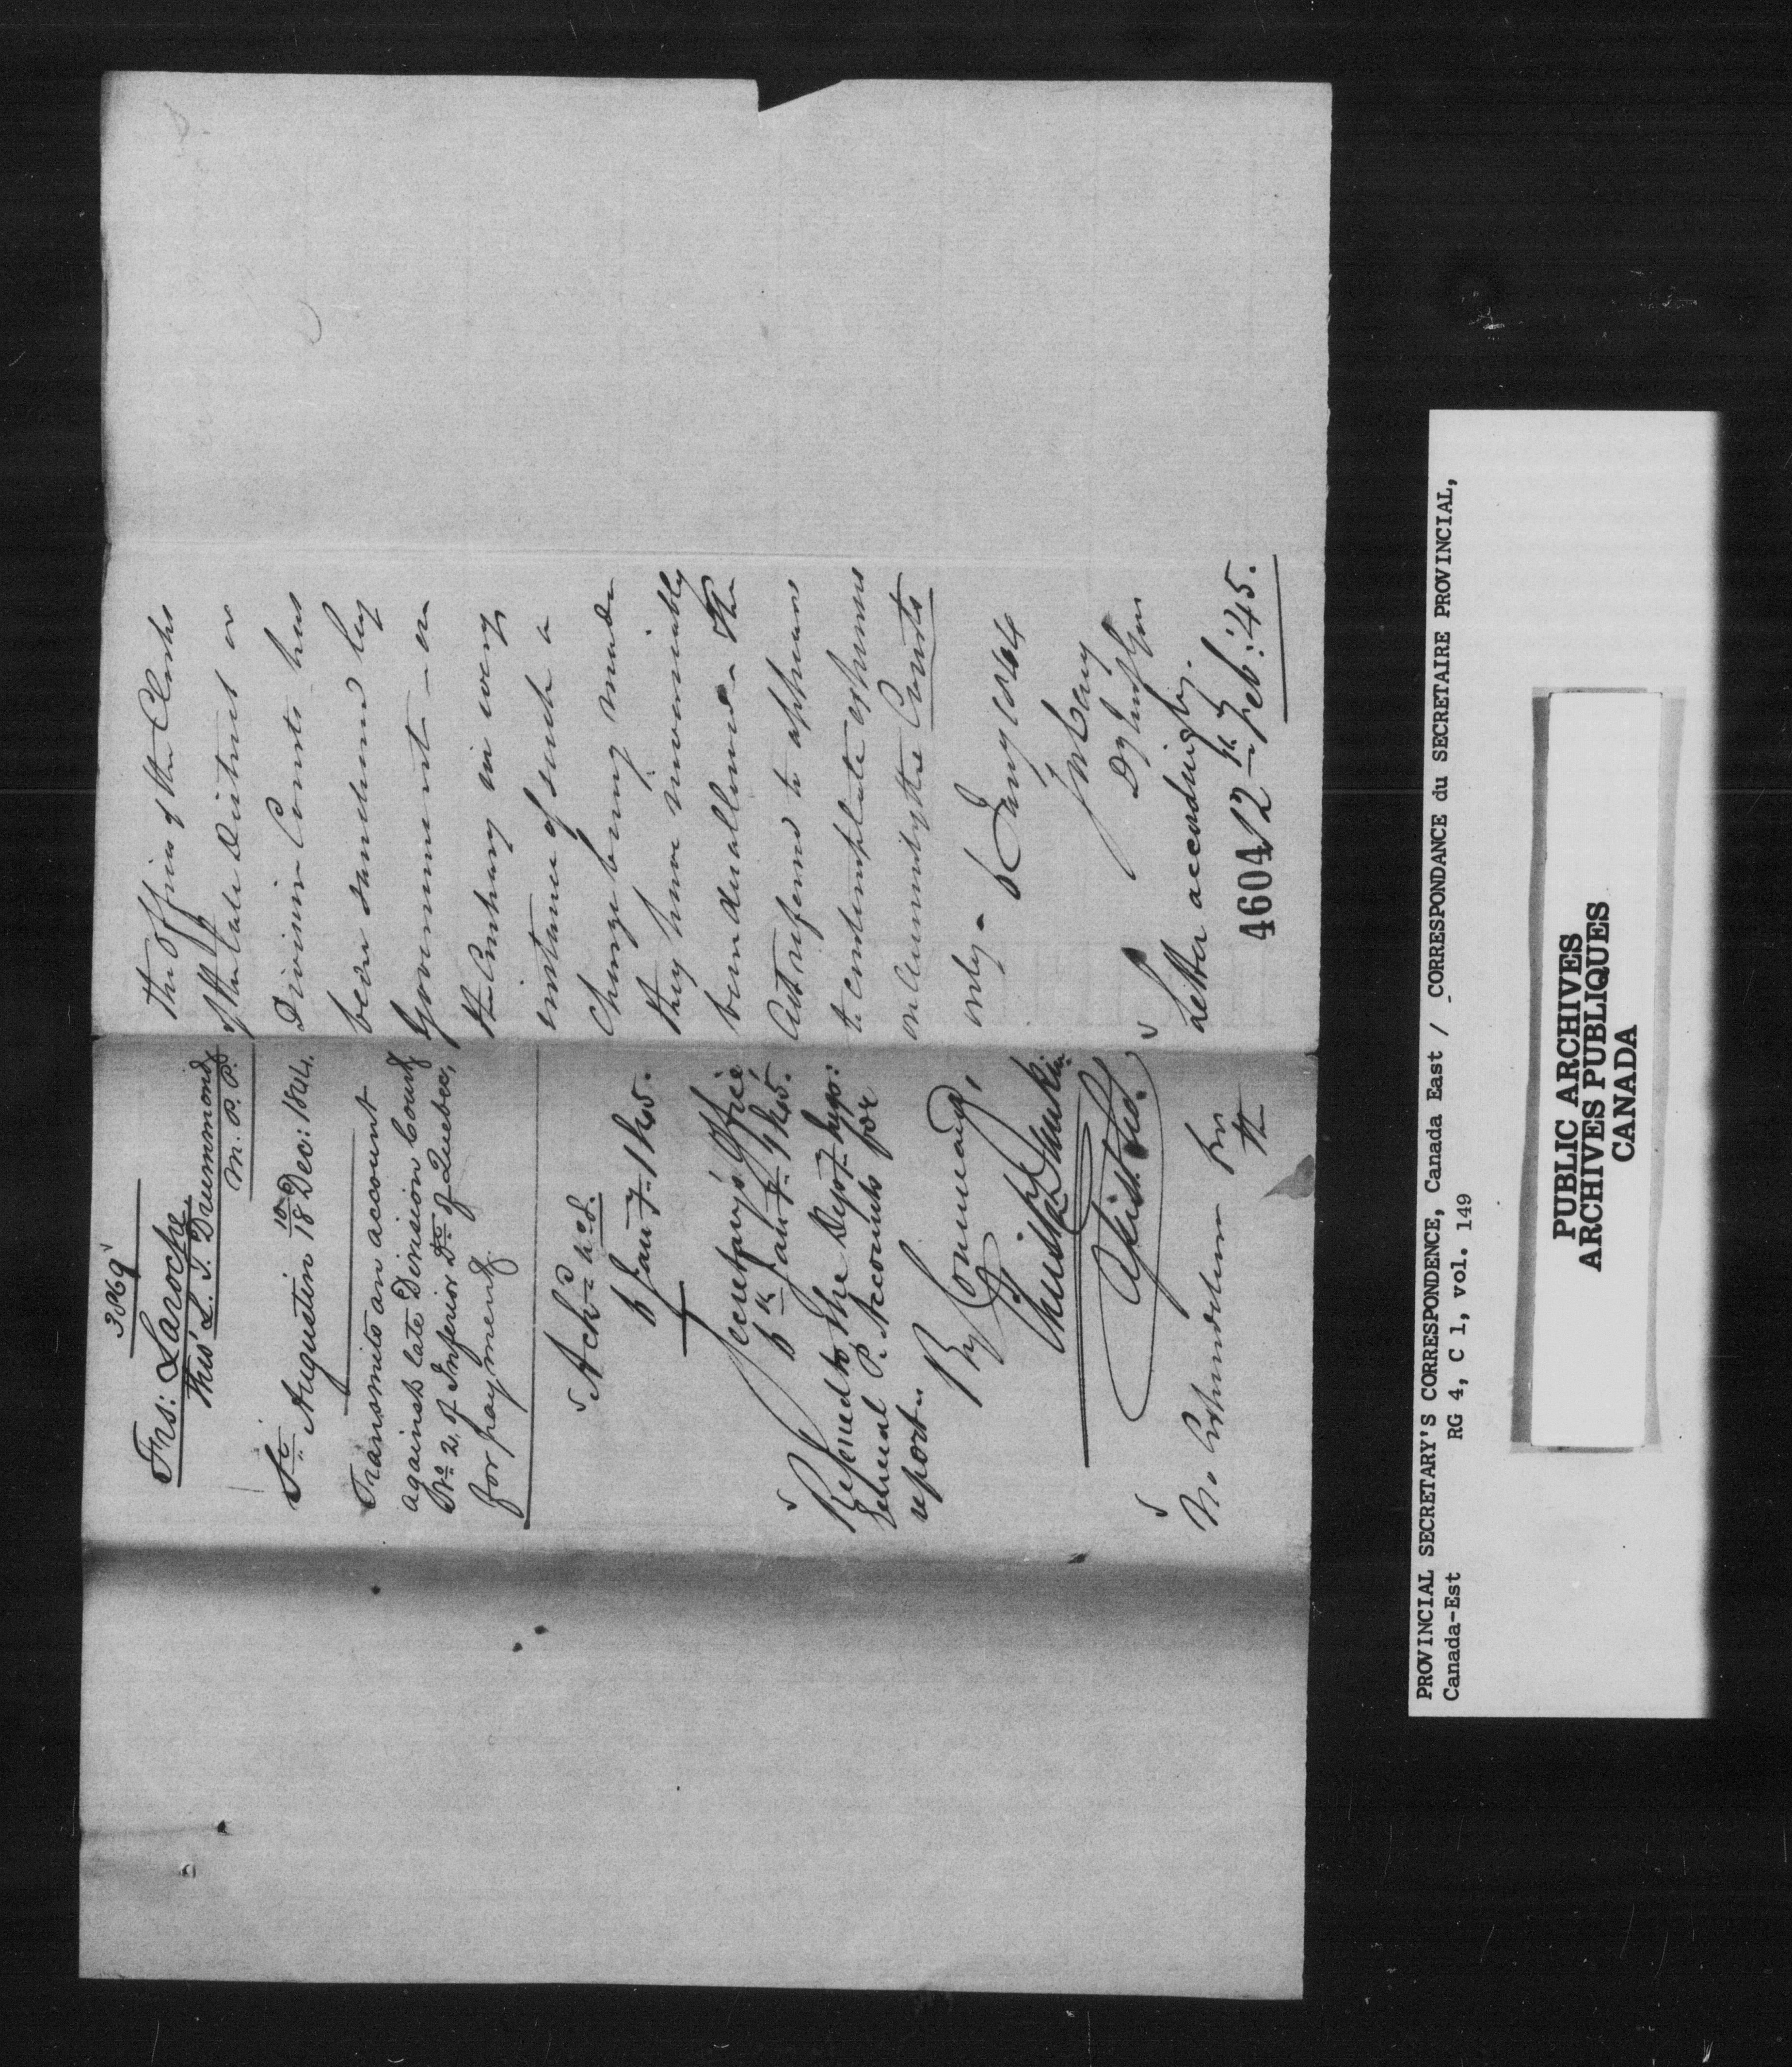 3869
Frs: Laroche
Thro' L. T. Drummond
M. P. P.
St. Augustin 18 Dec: 1844.
Transmits an account
against late Division Court
No. 2. of Inferior Dt. of Quebec,
for payment
Ackd.
6 Jany. 1845.
Secretary's Office,
6th Jany. 1845.
Refered to the Depy. Insp:
General P. Accounts for
report
By Command,
Assist. Sec.
No Contribution for
the
the office of the Clerks
of the late District or
Division Courts has
been sanctioned by
Government – on
the Contrary in every
instance of such a
Charge being made
they have invariably
been disallowed – The
Act refered to appears
to contemplate expenses
only –
J W Cary
Letter accordingly.
12th Feb: '45.
46041
PROVINCIAL SECRETARY'S CORRESPONDENCE, Canada East / CORRESPONDANCE du SECRETAIRE PROVINCIAL,
Canada-Est RG 4, C 1, vol. 149
PUBLIC ARCHIVES
ARCHIVES PUBLIQUES
CANADA